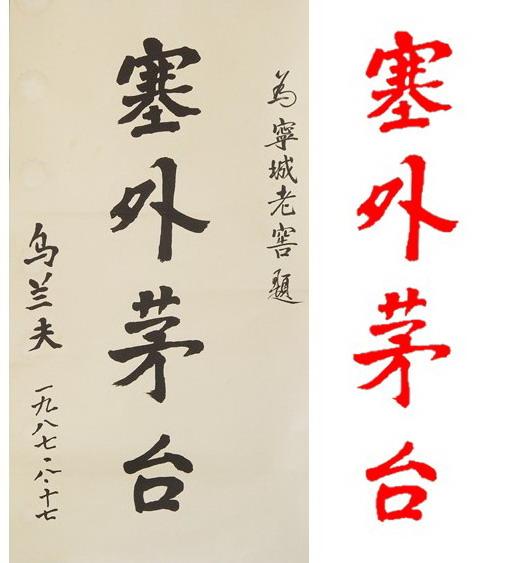 为寧城老窖题
塞外茅台
乌兰夫
一九八七·八·十七
塞外茅台